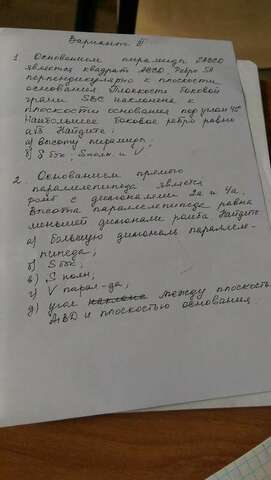 Вариант II
1. Основанием пирамиды SABCD
является квадрат ABCD. Ребро SA
перпендикулярно к плоскости
основания. Плоскость боковой
грани SBC наклонена к
плоскости основания под углом 45°
Наибольшее боковое ребро равно
Найдите:
а) высоту пирамиды
б) S бок, Sполн. и V.
2. Основанием прямого
параллелепипеда является
ромб с диагоналями 2a и 4a.
Высота параллелепипеда равна
меньшей диагонали ромба. Найдите
а) большую диагональ параллеле-
пипеда;
б) S бок;
в) S полн;
г) V парал-да;
д) угол между плоскость
A₁BD и плоскостью основания.